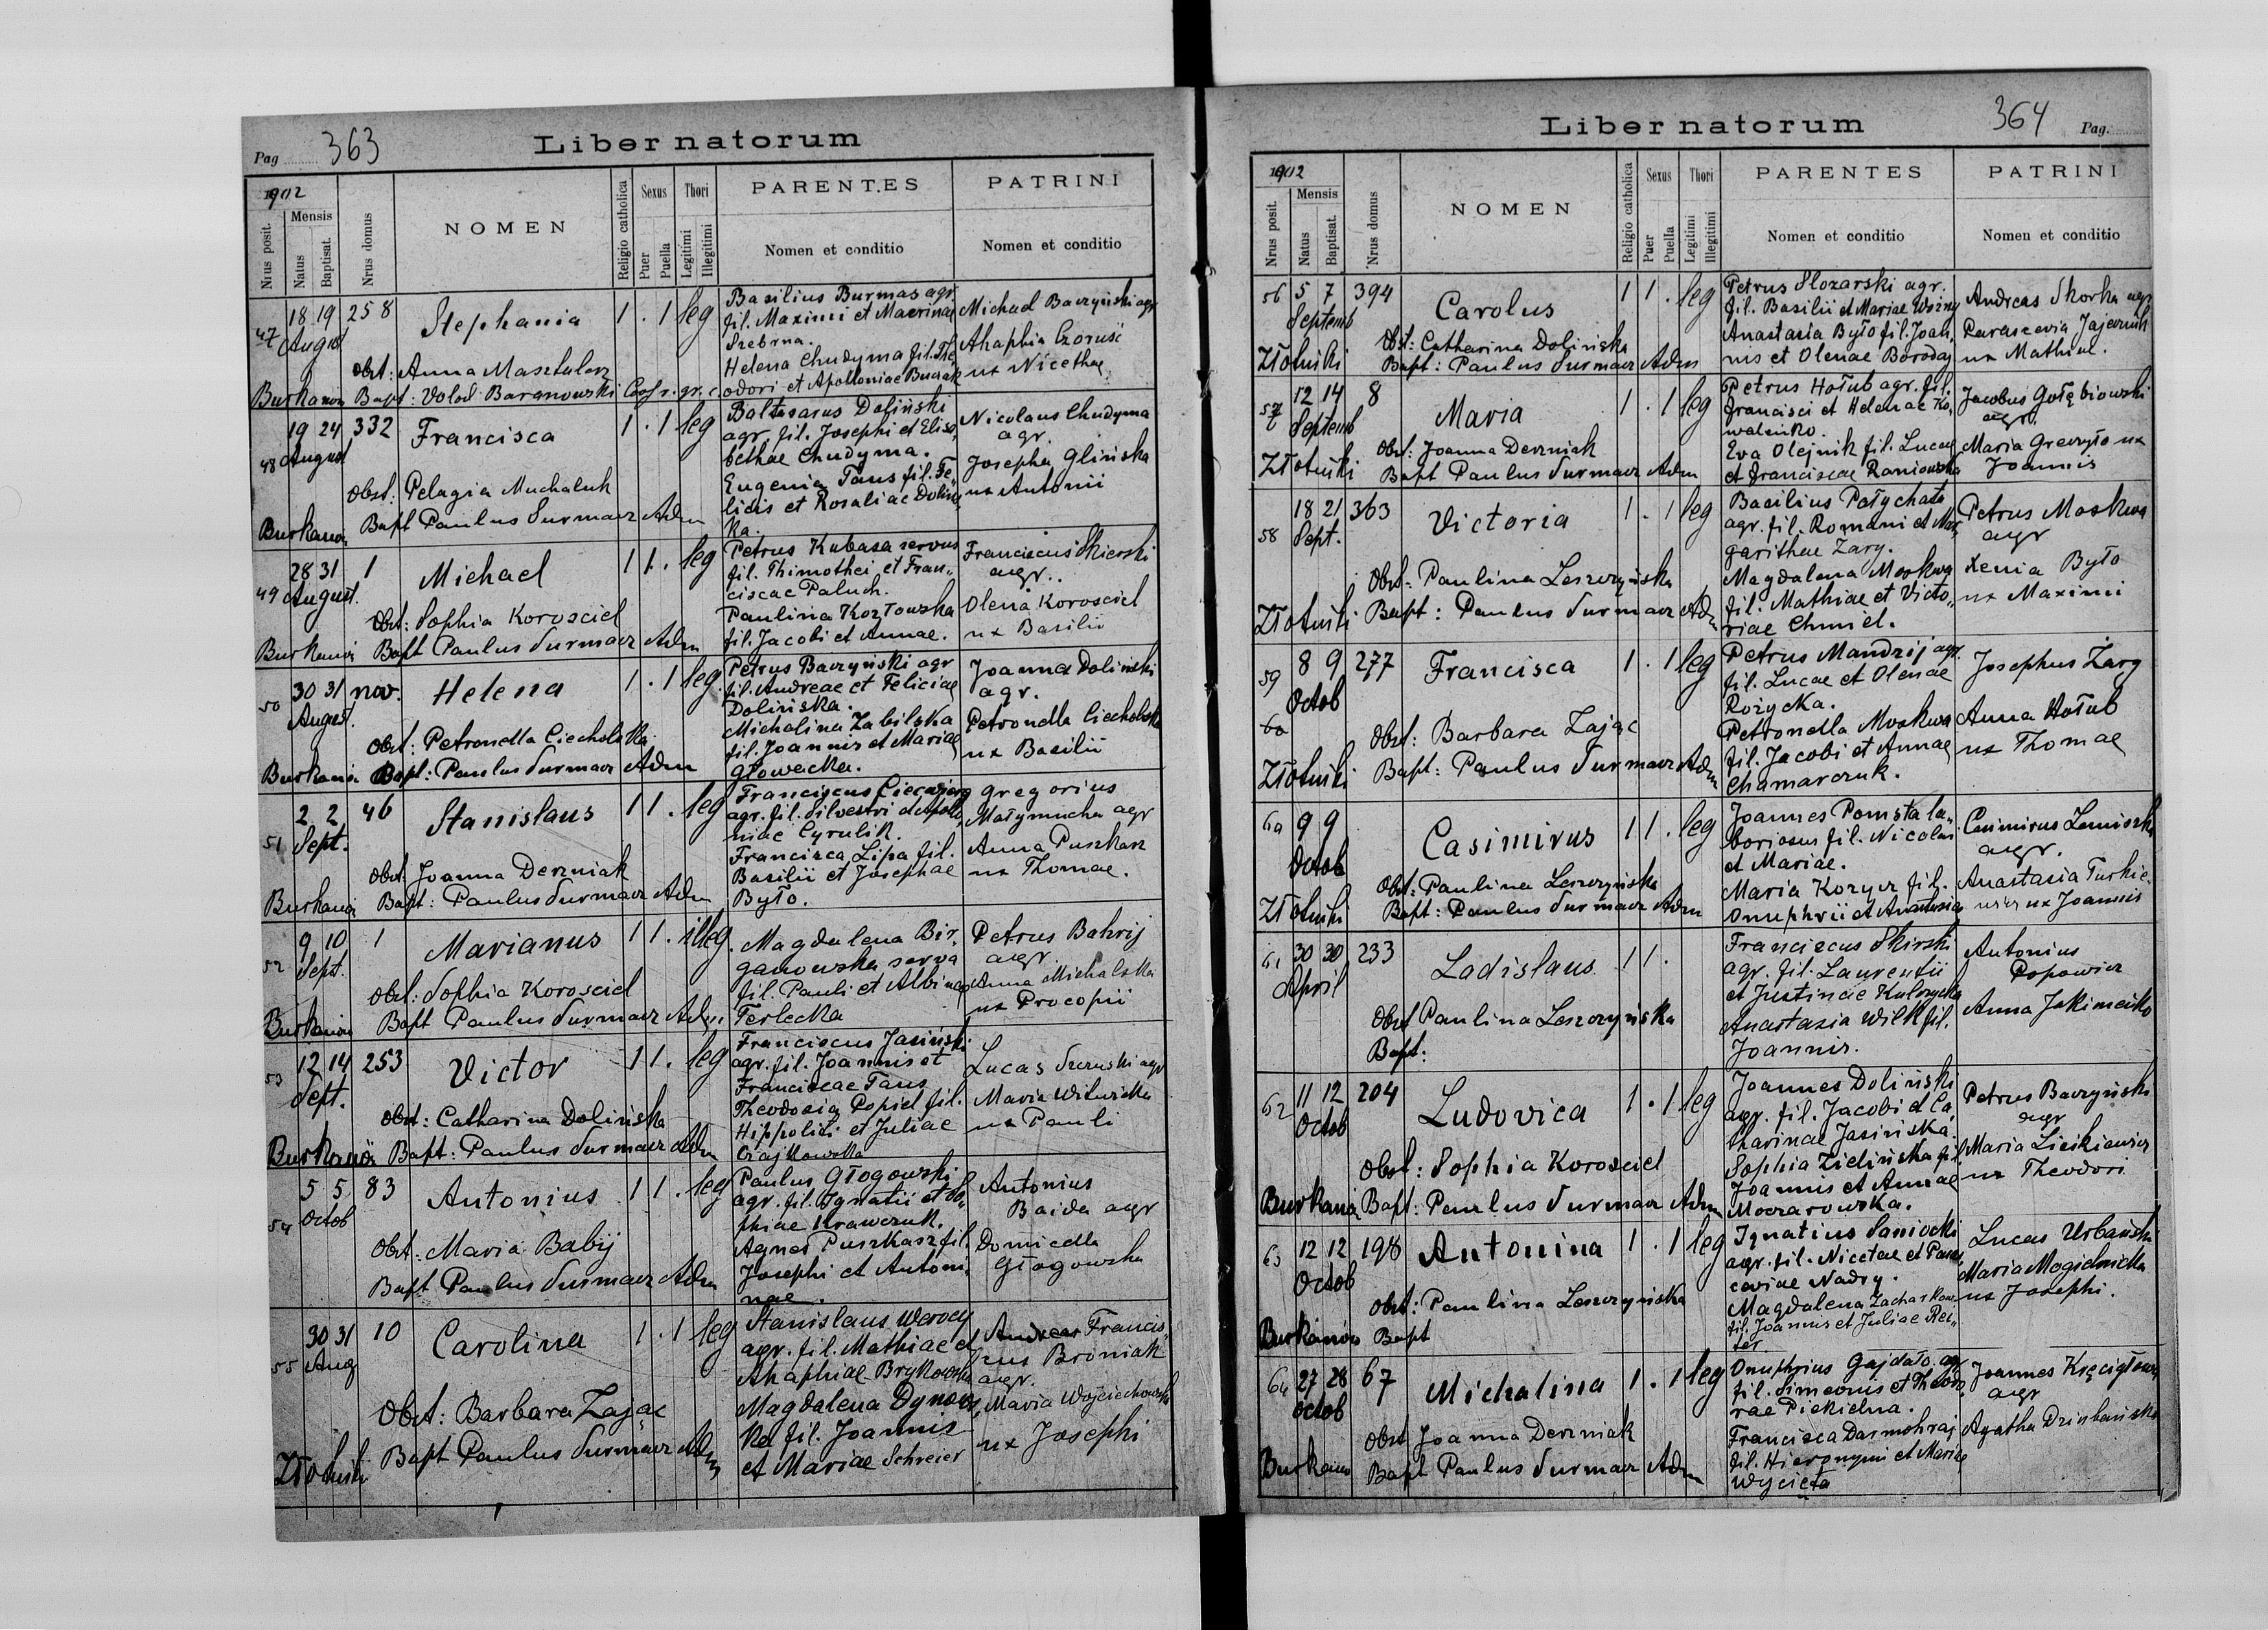 Pag 363
Liber natorum
1902
Nrus posit.
Mensis
Natus
Baptisat.
Nrus domus
NOMEN
Religio catholica
Sexus
Puer
Puella
Thori
Legitimi
Illegitimi
PARENTES
Nomen et conditio
PATRINI
Nomen et conditio
47
18 19 258
August
Stephania
1 . 1 leg
Basilius Burmas agr.
fil. Maximi et Macrinae
Srebrna.
Helena Chudyma fil. The
odori et Apolloniae Buciak
Michael Baczyński agr
Ahaphia
ux Nicethae
Obst: Anna Masztalerz
Burkanów Bapt: Volod. Baranowski Coop. r. gr. c.
48
19 24 332
August
Francisca
1 . 1 leg
Baltasarus Doliński
agr. fil. Josephi et Elisa,,
bethae Chudyma.
Eugenia Taus fil. Fe,,
licis et Rosaliae Dolińs,,
ka.
Nicolaus Chudyma
agr.
Josepha Glińska
ux Antonii
Obst: Pelagia Muchaluk
Burkanów Bapt Paulus Surmacz Adm
49
28 31 1
August.
Michael
1 1 . leg
Petrus Kubasa servus
fil. Thimothei et Fran,,
ciscae Paluch.
Paulina Kozłowska
fil. Jacobi et Annae.
Franciscus Skierski
agr.
Olena Korosciel
ux Basilii
Obst: Sophia Korosciel
Burkanów Bapt Paulus Surmacz Adm
50
30 31 nov.
August.
Helena
1 . 1 leg.
Petrus Baczyński agr
fil. Andreae et Feliciae
Dolińska.
Michalina Zabilska
fil. Joannis et Mariae
Głowacka.
Joanna Doliński
agr.
Petronella Ciecholska
ux Basilii
Obst: Petronella Ciecholska
Burkanów Bapt: Paulus Surmacz Adm
51
2 2 46
Sept.
Stanislaus
1 1 . leg
Franciscus
agr. fil. Silvestri et Apollo,,
niae Cyrulik.
Francisca Lipa fil.
Basilii et Josephae
Byto.
Gregorius
Małymucha agr
Anna Puszkarz
ux Thomae.
Obst: Joanna Derzniak
Burkanów Bapt: Paulus Surmacz Adm
52
9 10 1
Sept.
Marianus
1 1 . illeg.
Magdalena Bir,,
ganowska serva
fil. Pauli et Albinae
Terlecka
Petrus Bahrij
agr.
Anna Michalska
ux Procopii
Obst: Sophia Korosciel
Burkanów Bapt Paulus Surmacz Adm.
53
12 14 253
Sept.
Victor
1 1 . leg
Franciscus Jasiński
agr. fil. Joannis et
Franciscae Taus
Theodosia Popiel fil.
Hippoliti et Juliae
Czajkowska
Lucas Szczuski agr
Maria Witwicka
ux Pauli
Obst: Catharina Dolińska
Burkanów Bapt: Paulus Surmacz Adm
54
5 5 83
Octob
Antonius
1 1 . leg
Paulus Głogowski
agr. fil. Ignatii et So,,
phiae Krawczuk.
Agnes Puszkasz fil.
Josephi et Antoni,,
nae.
Antonius
Baida agr
Domicella
Głogowska
Obst: Maria Babij
Bapt Paulus Surmacz Adm
55
30 31 10
Aug
Carolina
1 . 1 leg
Stanislaus Worocy
agr. fil. Mathiae et
Ahaphiae Brykowska
Magdalena Dynows,,
ka fil. Joannis
et Mariae Schreier
Andreas Francis,,
cus Broniak
agr.
Maria Wojciechowska
ux Josephi
Obst: Barbara Zając
Złotniki Bapt Paulus Surmacz Adm
Liber natorum
364 Pag.
1902
Nrus posit.
Mensis
Natus
Baptisat.
Nrus domus
NOMEN
Religio catholica
Sexus
Puer
Puella
Thori
Legitimi
Illegitimi
PARENTES
Nomen et conditio
PATRINI
Nomen et conditio
56
5 7 394
Septemb
Carolus
1 1 . leg
Petrus Slozarski agr.
fil. Basilii et Mariae Woźny
Anastasia Byto fil. Joan,,
nis et Olenae Boroday
Andreas Skorka agr
Parascevia Jajecznik
ux Mathiae.
Obst: Catharina Dolińska
Złotniki Bapt: Paulus Surmacz Adm
57
12 14 8
Septemb
Maria
1 . 1 leg
Petrus Hołub agr. fil.
Francisci et Helenae Ko,,
waleńko.
Eva Olejnik fil. Lucae
et Franciscae Raniowska
Jacobus Gołębiowski
agr.
Maria Greczyło ux
Joannis
Obst: Joanna Derzniak
Złotniki Bapt Paulus Surmacz Adm
58
18 21 363
Sept.
Victoria
1 . 1 leg
Basilius Połychata
agr. fil. Romani et Mar,,
garithae Zary.
Magdalena Moskwa
fil. Mathiae et Victo,,
riae Chmiel.
Petrus Moskwa
agr
Xenia Byto
ux Maximi
Obst: Paulina Leszczyńska
Złotniki Bapt: Paulus Surmacz Adm
59
8 9 277
Octob
Francisca
1 . 1 leg
Petrus Mandzij agr.
fil. Lucae et Olenae
Rożycka.
Petronella Moskwa
fil. Jacobi et Annae
Chamarczuk.
Josephus Zary
Anna Hołub
ux Thomae
60
Obst: Barbara Zając
Złotniki Bapt: Paulus Surmacz Adm
60
9 9
Octob
Casimirus
1 1 . leg
Joannes Pomsta la,,
boriosus fil. Nicolai
et Mariae.
Maria Kozyr fil.
Onuphrii et Anastasiae
Casimirus Lemiszka
agr.
Anastasia Turkie,,
wicz ux Joannis
Obst: Paulina Leszczyńska
Złotniki Bapt: Paulus Surmacz Adm
61
30 30 233
April
Ladislaus
1 1 .
Franciscus Skirski
agr. fil. Laurentii
et Justinae Kulczycka
Anastasia Wilk fil.
Joannis.
Antonius
Popowicz
Anna Jakimcisko
Obst Paulina Leszczyńska
Bapt:
62
11 12 204
Octob
Ludovica
1 . 1 leg
Joannes Doliński
agr. fil. Jacobi et Ca,,
tharinae Jasińska.
Sophia Zielińska fil.
Joannis et Annae
Moczarowska.
Petrus Baczyński
agr
Maria Lieskiewicz
ux Theodori
Obst: Sophia Korosciel
Burkanów Bapt: Paulus Surmacz Adm
63
12 12 198
Octob
Antonina
1 . 1 leg
Ignatius Saniocki
agr. fil. Nicetae et Paras,,
ceviae Nadry.
Magdalena Zacharkow
fil. Joannis et Juliae Rei,,
ter
Lucas Urbański
Maria Mogielnicka
ux Josephi.
Obst: Paulina Leszczyńska
Burkanów Bapt
64
27 28 67
Octob
Michalina
1 . 1 leg
Onuphrius Gajdało agr
fil. Simeonis et Theodo
rae Piekielna.
Francisca Darmohraj
fil. Hieronymi et Mariae
Wycięta
Joannes
agr
Agatha Dziubańska
Obst Joanna Derzniak
Burkanów Bapt Paulus Surmacz Adm